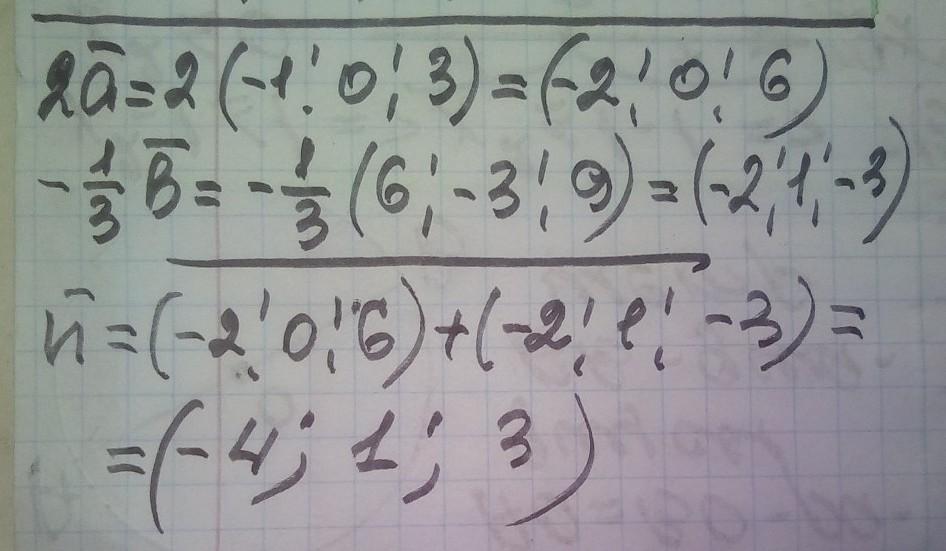 2a̅ = 2 (-1; 0; 3) = (-2; 0; 6)
-1/3 b̅ = -1/3 (6; -3; 9) = (-2; 1; -3)
n̅ = (-2; 0; 6) + (-2; 1; -3) =
= (-4; 1; 3)